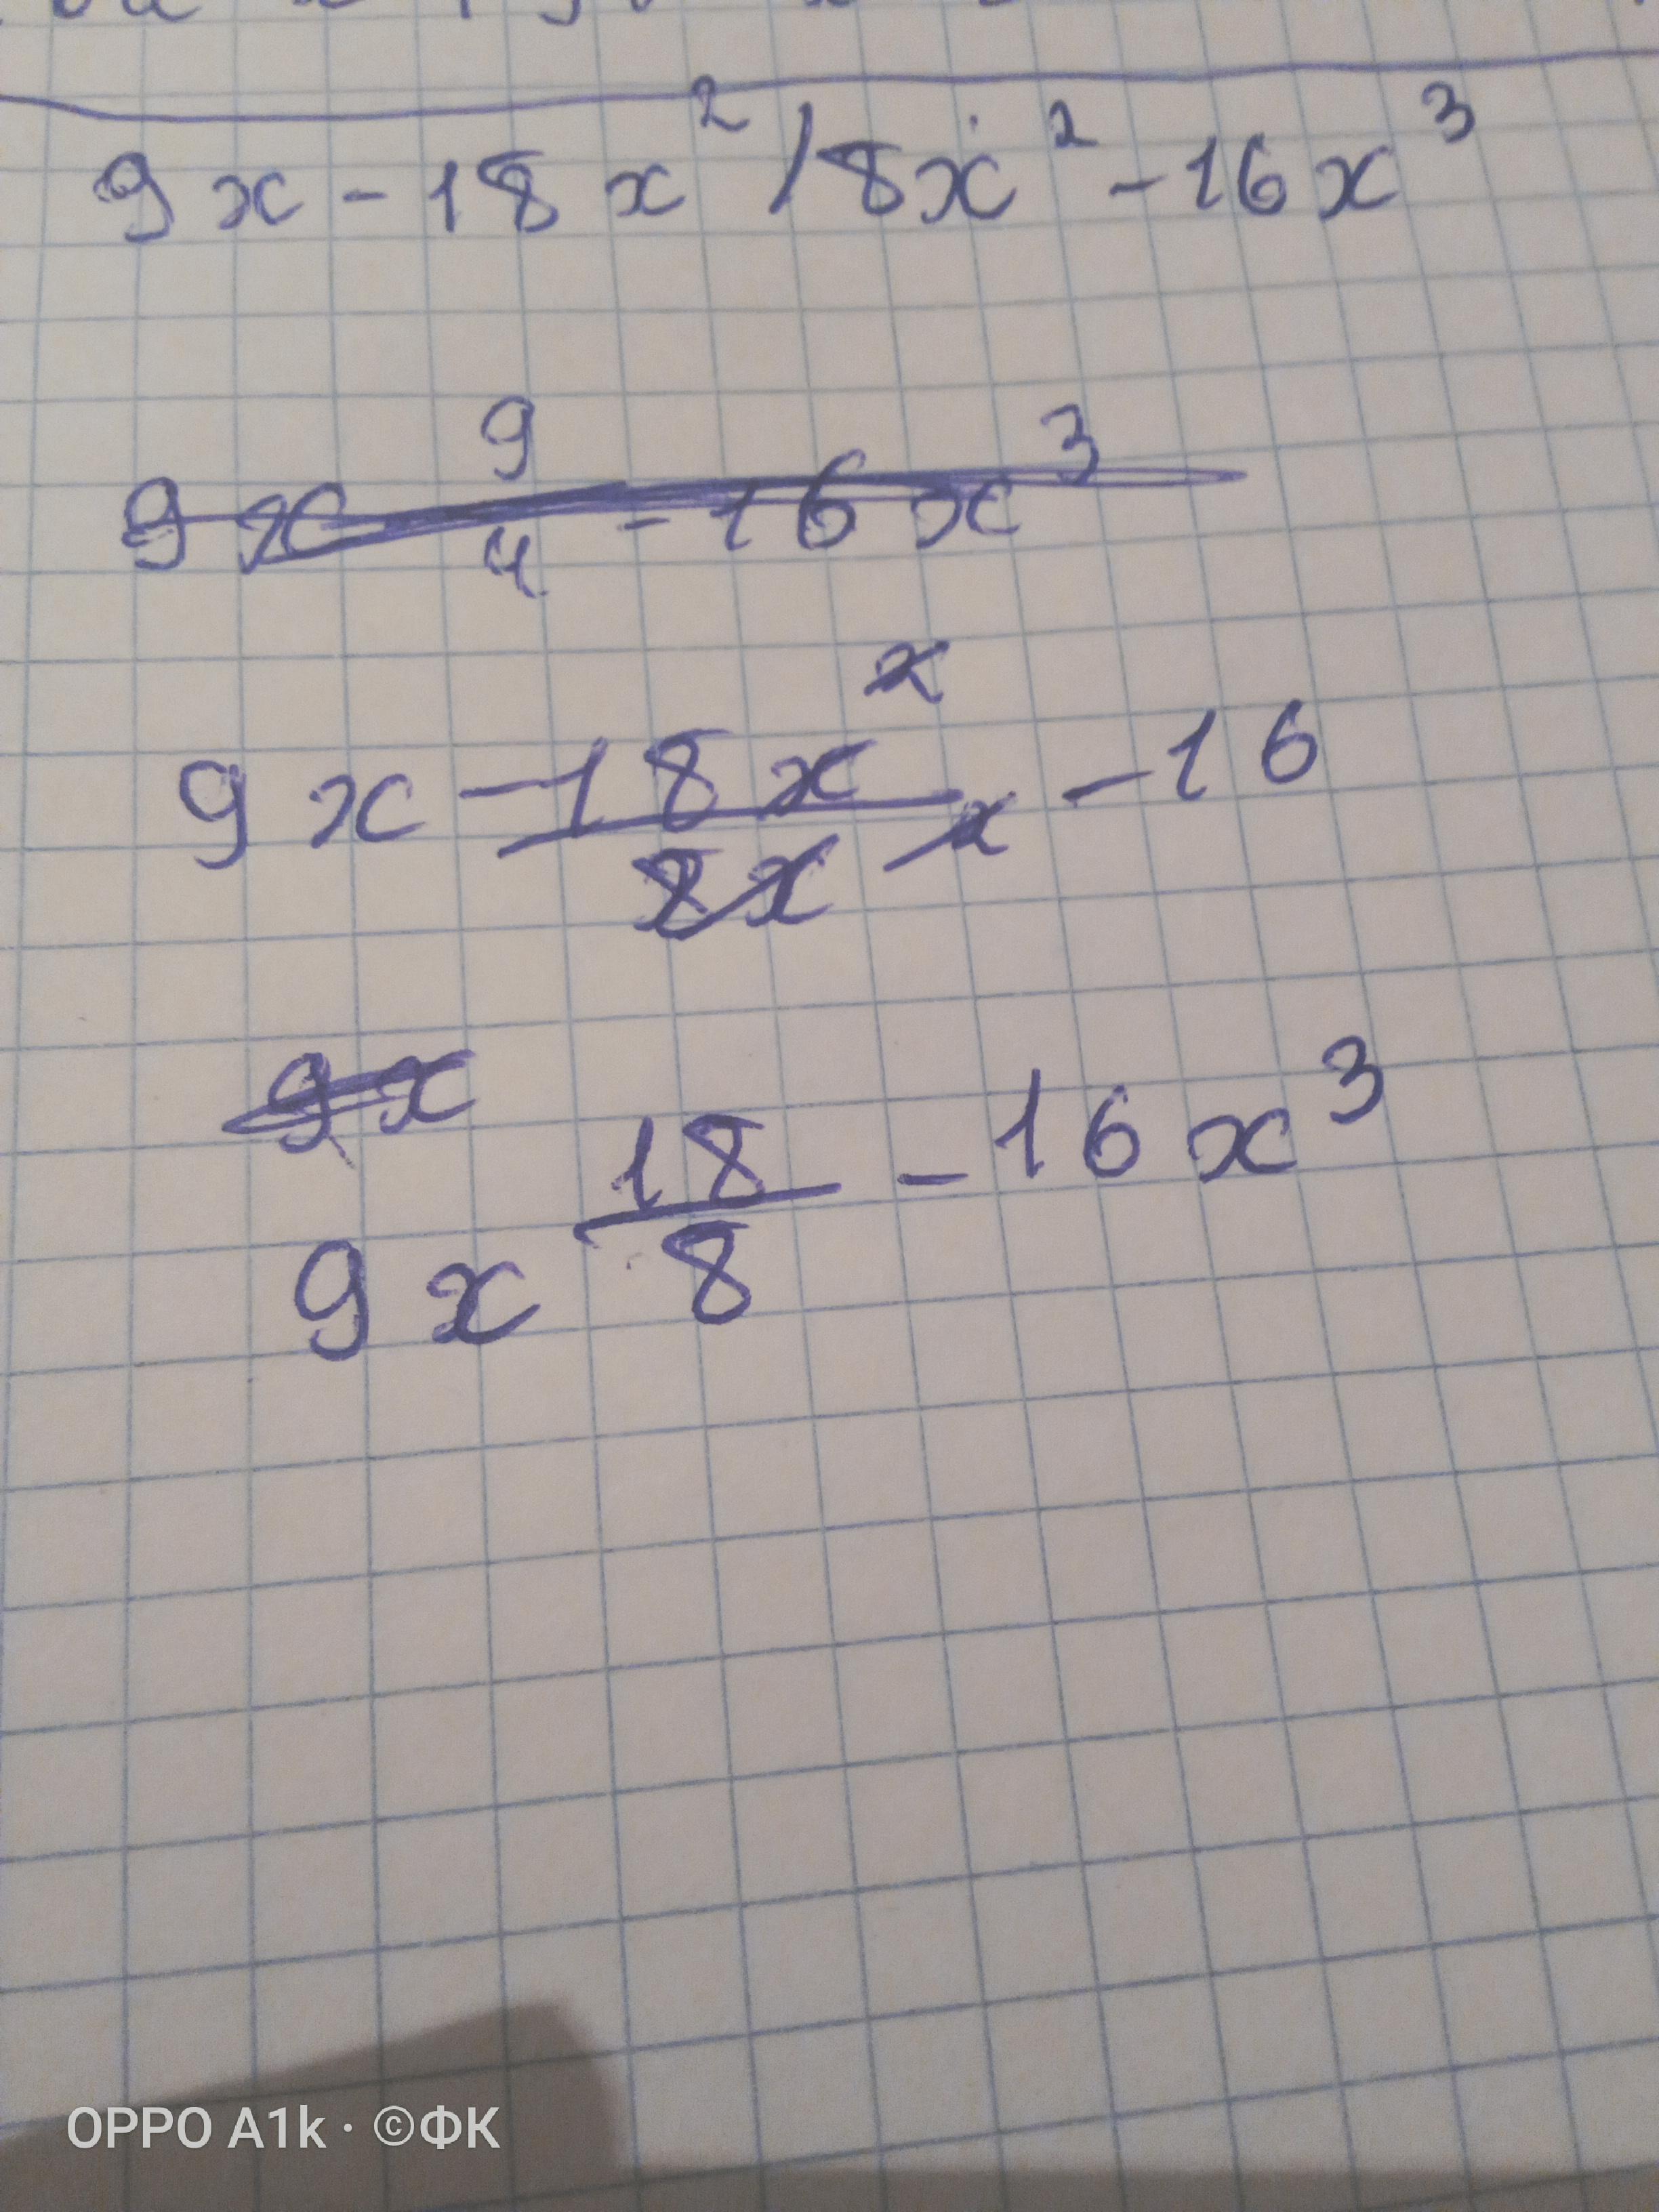 9x - 18x² / 8x² - 16x³
9x 9/4 - 16x³
9x - 18x^x / 8x x - 16
9x
9x 18/8 - 16x³
OPPO A1k · ©ФК